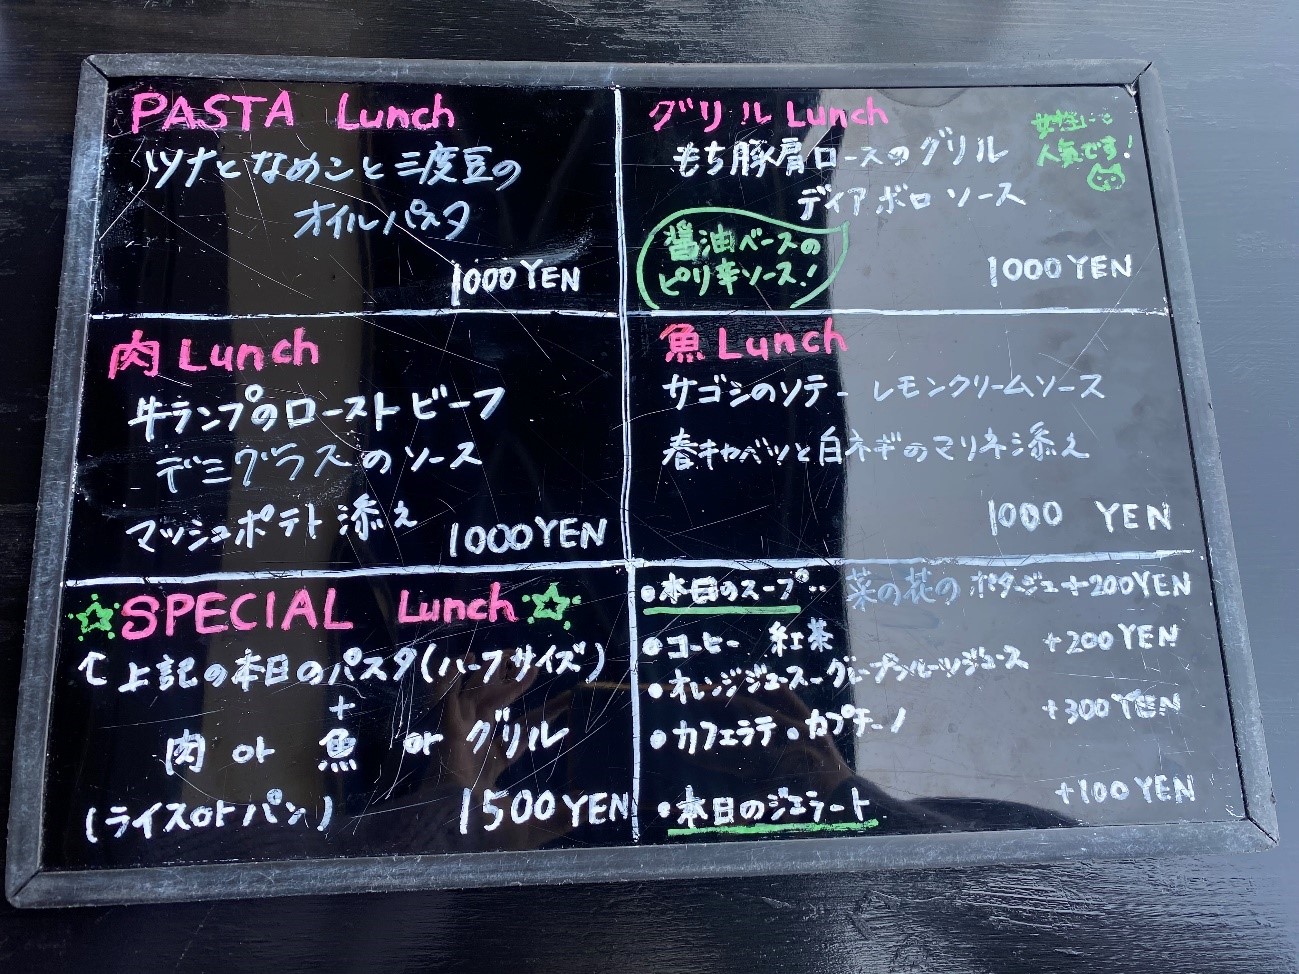 PASTA Lunch
ツナとなめこと三度豆の
オイルパスタ
1000YEN
グリルLunch
女性に
人気です!
もち豚肩ロースのグリル
ディアボロソース
醤油ベースの
ピリ辛ソース!
1000YEN
肉Lunch
牛ランプのローストビーフ
デミグラスのソース
マッシュポテト添え
1000YEN
魚Lunch
サゴシのソテー レモンクリームソース
春キャベツと白ネギのマリネ添え
1000 YEN
SPECIAL Lunch
上記の本日のパスタ(ハーフサイズ)
+
肉 or 魚 or グリル
(ライスorパン)
1500YEN
・本日のスープ‥ 菜の花のポタージュ+200YEN
・コーヒー 紅茶 +200YEN
・オレンジジュース-グレープフルーツジュース
・カフェラテ・カプチーノ +300YEN
・本日のジェラート +100YEN